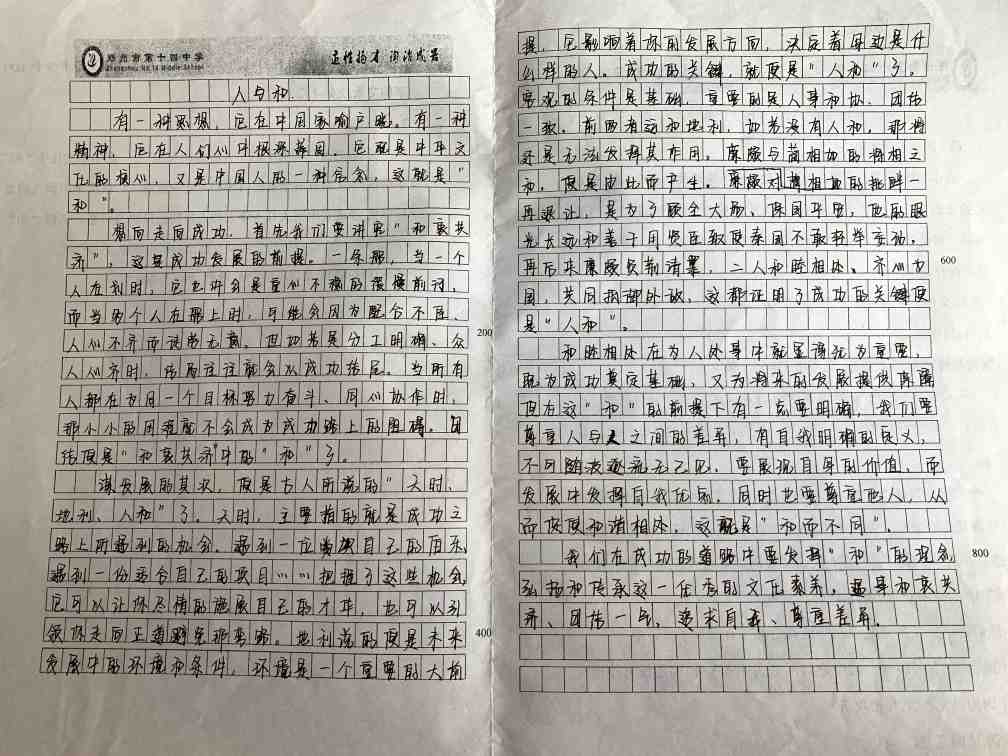 郑州市第十四中学
Zhengzhou No.14 Middle School
正性扬才 陶冶成器
人与和.
有一种思想，它在中国家喻户晓。有一种
精神，它在人们心中根深蒂固。它既是中华文
化的核心，又是中国人的一种信念，这就是“
和”。
想向走向成功，首先我们要讲究“和衷共
济”，这是成功发展的前提。一条船，当一个
人在划时，它也许会是重心不稳的缓慢前行，
而当多个人在船上时，可能会因为配合不匝、
人心不齐而误劳无商。但如若是分工明确、众
人心齐时，结局往往就会以成功结尾。当所有
人都在为同一个目标努力奋斗、同心协作时，
那小小的困难就不会成为成功路上的阻碍。团
结便是“和衷共济中的”和”了。
谋发展的其次，便是古人所说的“天时、
地利、人和”了。天时，主要指的就是成功之
路上所遇到的机会。遇到一位赏识自己的伯乐
遇到一份适合自己的项目……把握了这些机会
它可以让你尽情的施展自己的才华，也可以引
领你走向正道避免那弯路。地利说的便是未来
发展中的环境和条件，环境是一个重要的大前
提，它影响着你的发展方向，决定着导边是什
么样的人。成功的关键，就便是“人和”了。
客观的条件是基础，重要的是人事和协、团结
一致。前面有这和地利，如若没有人和，那将
还是无法发挥其作用。廉颇与蔺相如的将相之
和，便是由此而产生。廉颇对蔺相如的挑衅一
再退让，是为了顾全大局、保国平安，他的眼
光长远和善于用贤臣致使秦国不敢轻举妄动，
再后来廉颇负荆请罪，二人和睦相处、齐心为
国，共同抵御外敌，这都证明了成功的关键便
是“人和”。
和睦相处在为人处事中就显得尤为重要，
既为成功奠定基础，又为将来的发展提供保障
但在这“和”的前提下有一点要明确，我们要
尊重人与人之间的差异，有自我明确的定义，
不可随波逐流无己见，要展现自身的价值，而
发展中发挥自我优点，同时也要尊重他人，从
而使便和谐相处，这就是“和而不同”。
我们在成功的道路中要发挥“和”的理念
弘扬和传承这一优秀的文化素养，遇事和衷共
济、团结一气，追求自我、尊重差异。
200
400
600
800